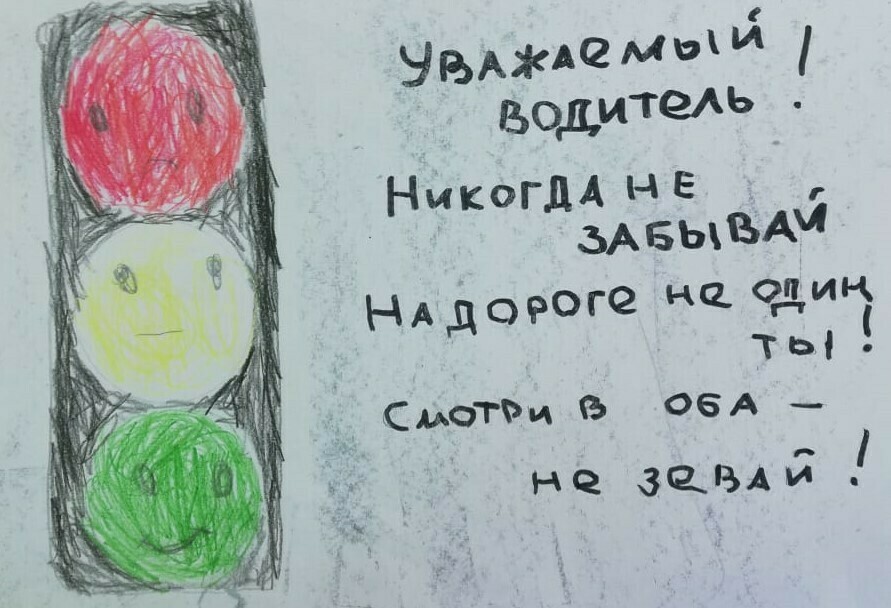 Уважаемый
водитель!
Никогда не
забывай
На дороге не один
ты!
Смотри в оба –
не зевай!